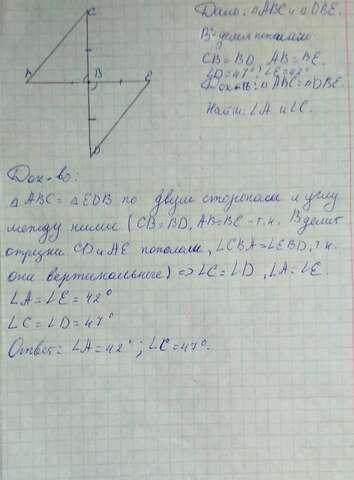 Дано: △ABC и △DBE.
B - делит пополам
CB = BD, AB = BE.
∠D = 47°; ∠E = 42°
Док-ть: △ABC = △DBE
Найти: ∠A и ∠C.
C
A B E
D
Док-во:
△ABC = △EDB по двум сторонам и углу
между ними (CB = BD, AB = BE - т.к. B делит
отрезки CD и AE пополам, ∠CBA = ∠EBD, т.к.
они вертикальные) => ∠C = ∠D, ∠A = ∠E.
∠A = ∠E = 42°
∠C = ∠D = 47°
Ответ: ∠A = 42°; ∠C = 47°.